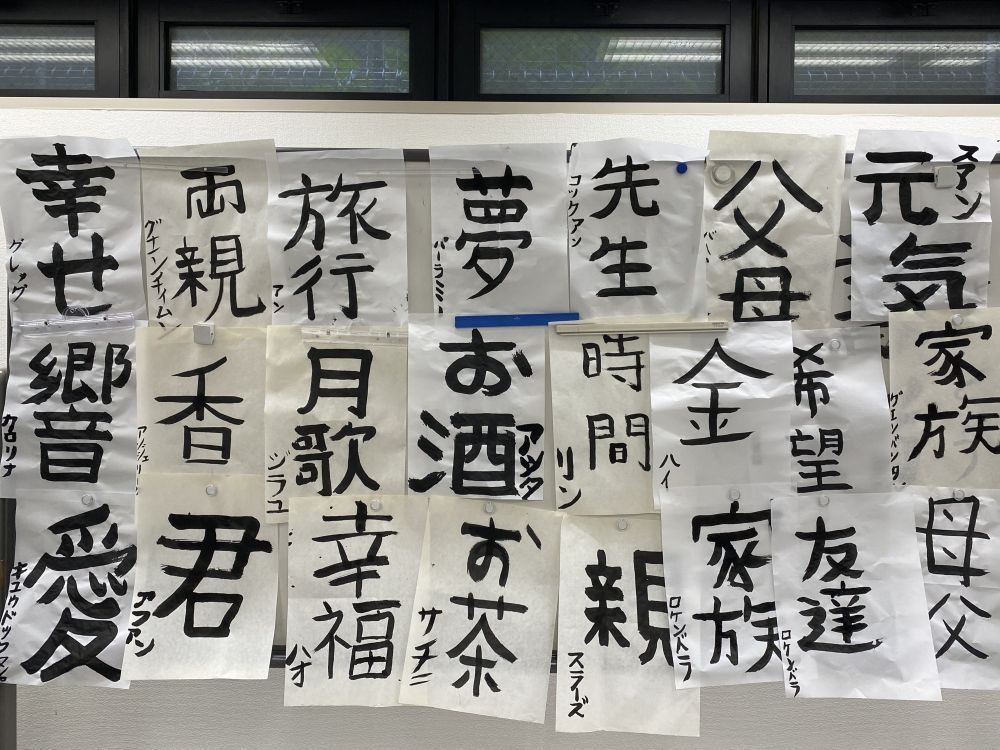 幸せ
グレッグ
両親
グナンチィムン
旅行
アン
夢
パーラミー
先生
コックアン
父母
バー
元気
スアン
響
カロリナ
香
月歌
ジラユ
お酒
アッタ
時間
リン
金
ハイ
希望
家族
愛
君
アフアン
幸福
ハオ
お茶
サチミ
親
スラーズ
家族
ロケンドラ
友達
ロケンドラ
母父